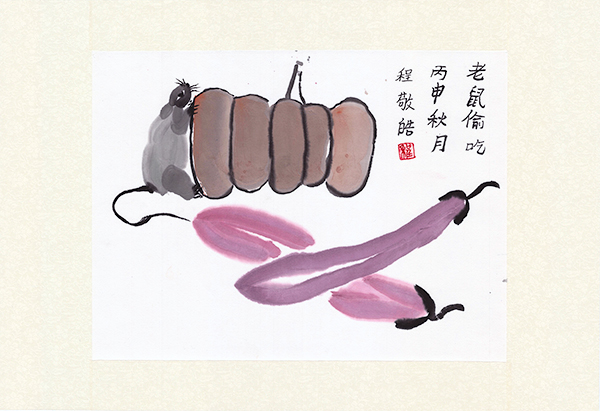 老鼠偷吃
丙申秋月
程敬皓